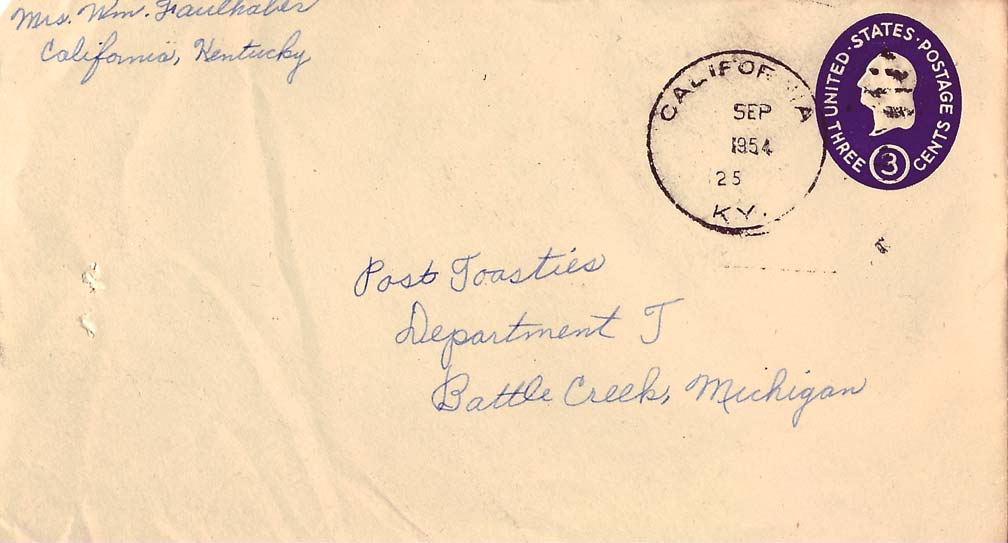 Mrs. Wm. Faulhaber
California, Kentucky
CALIFORNIA
SEP
1954
25
KY.
UNITED·STATES·POSTAGE
THREE 3 CENTS
Post Toasties
Department T
Battle Creek, Michigan